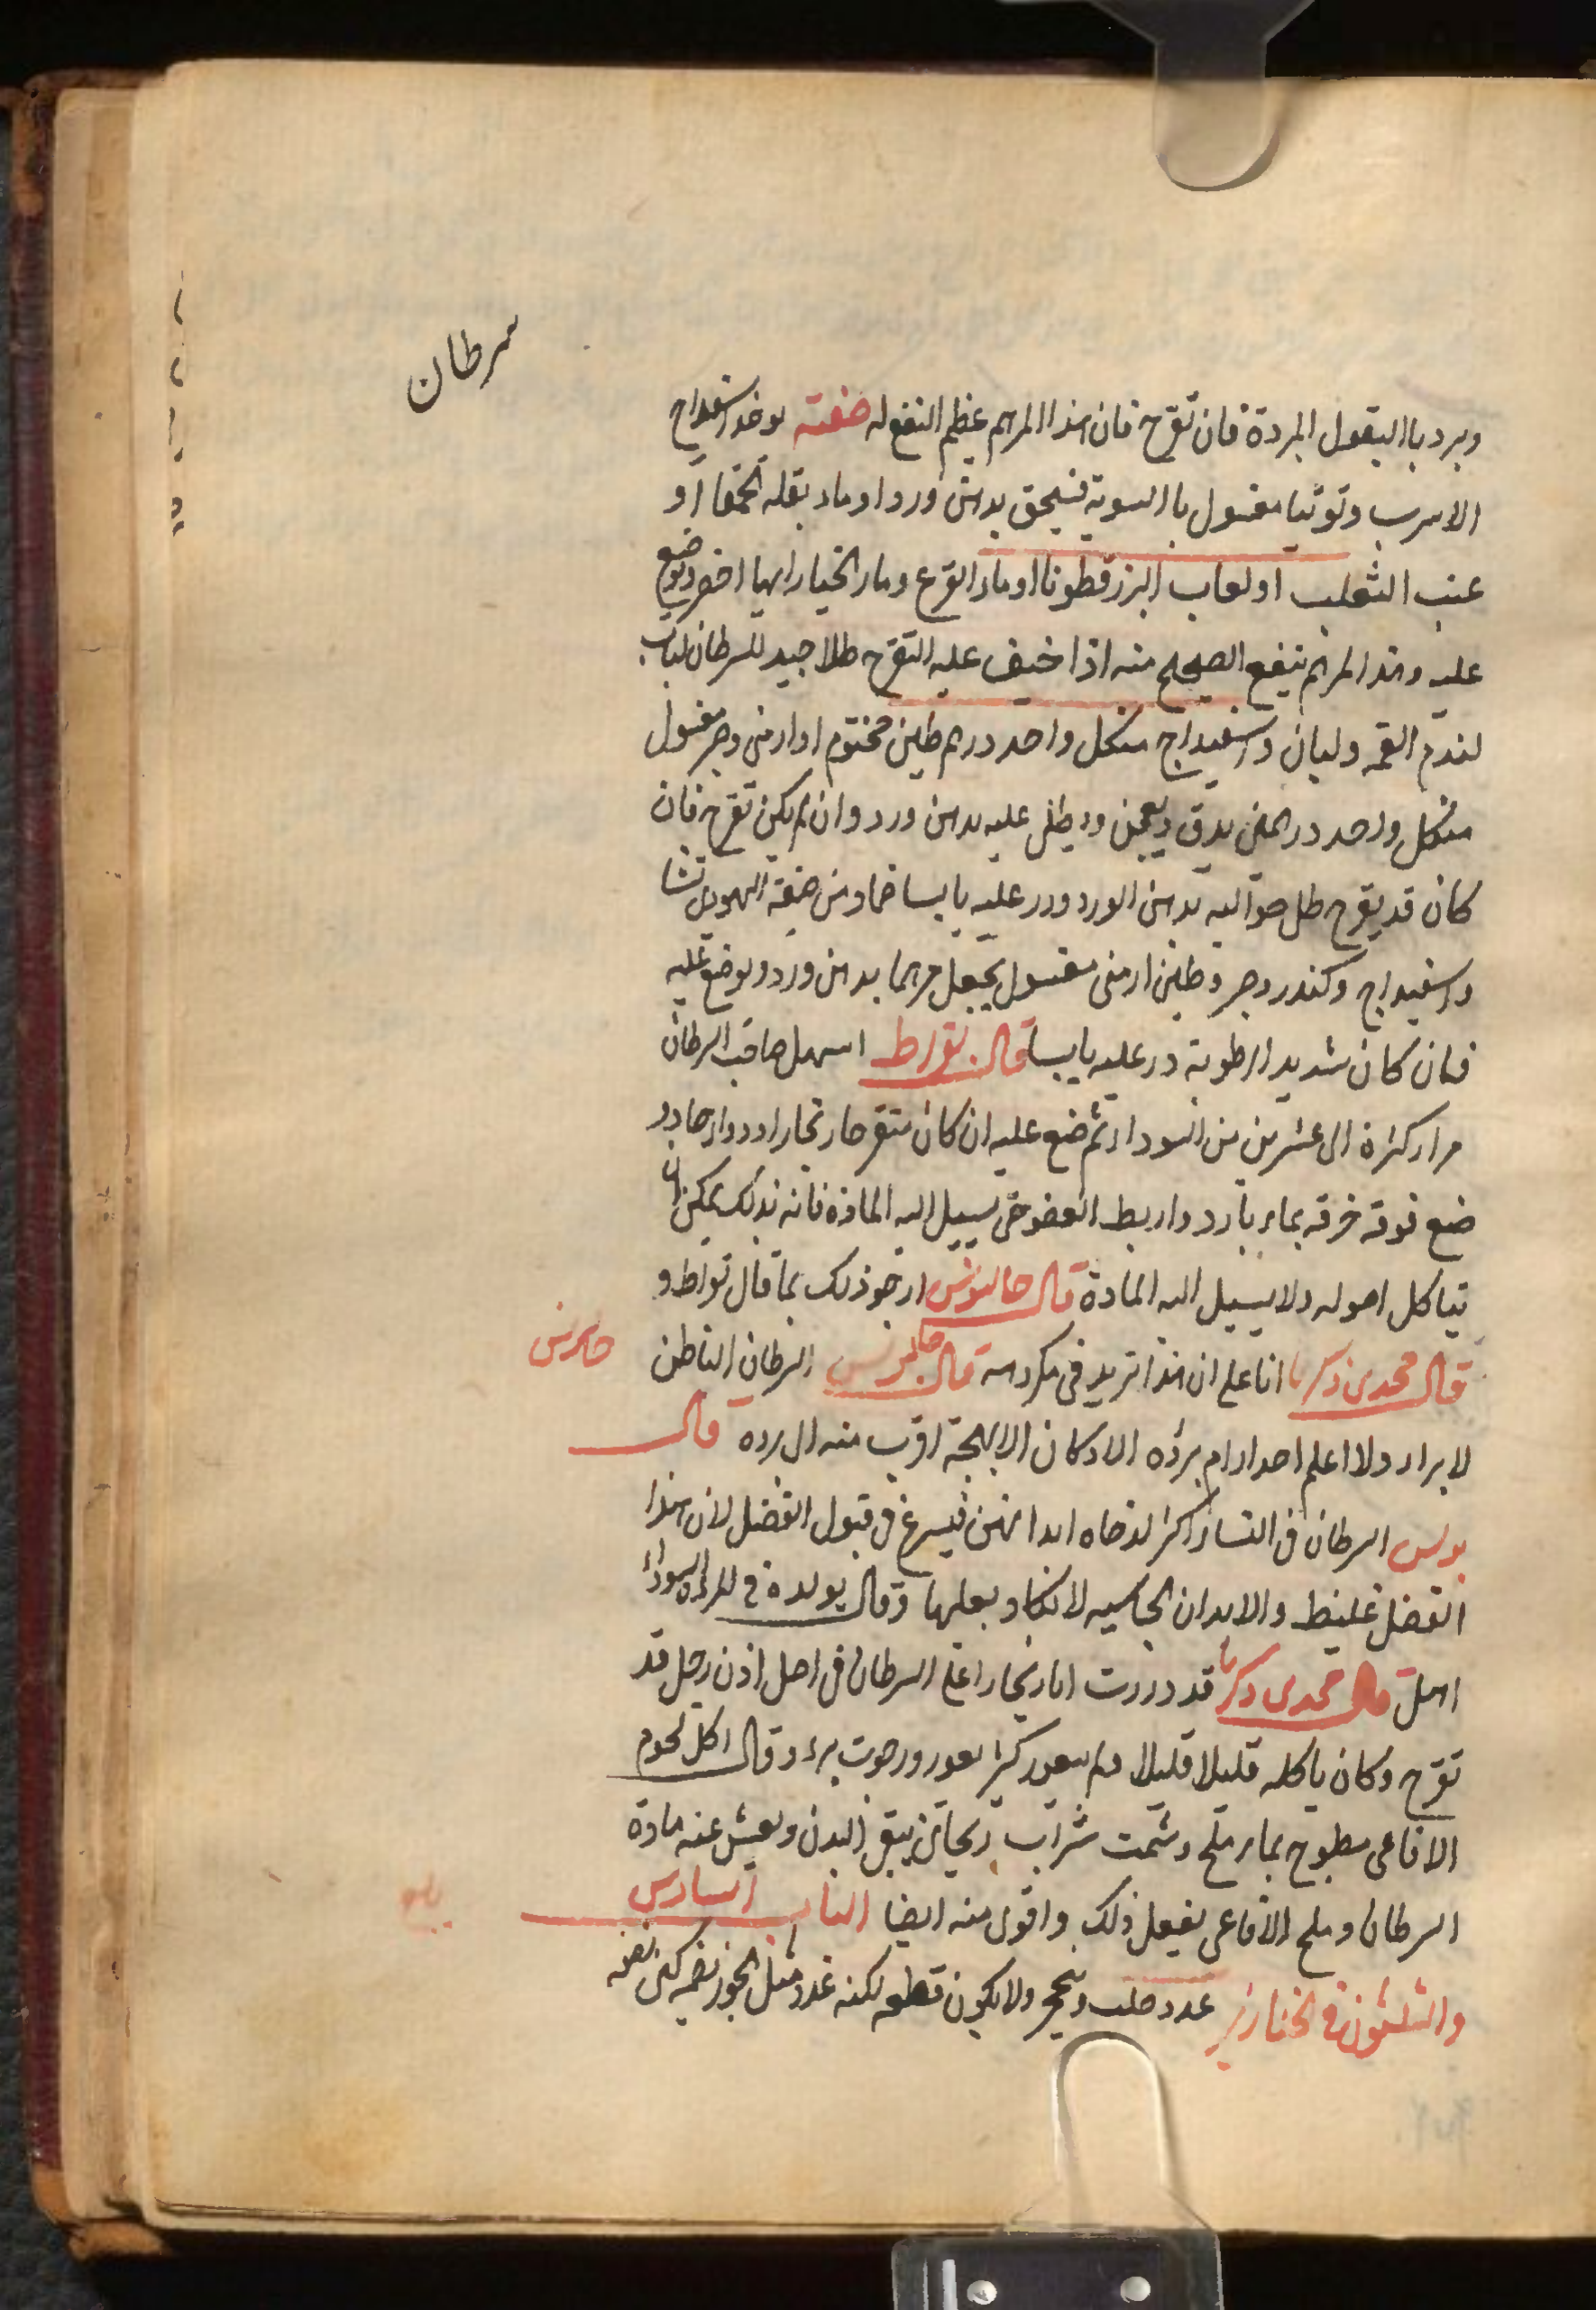 سرطان
وبرد باالبقول المبردة فان تقرح فان هذا المرهم عظيم النفع له صفته يوخذ اسفيداج
الاسرب وتوتيا مغسول باالسوية فيسحق بدهن ورد او ماء بقلة الحمقا او
عنب الثعلب او لعاب البزرقطونا او ماء القرع وماء الخيار ايها احضر ويوضع
عليه وهذا المرهم ينفع الصحيح منه اذا خيف عليه التقرح طلا جيد للسرطان لباب
القمح ولبان واسفيداج من كل واحد درهم طين مختوم او ارمنى وصبر مغسول
من كل واحد درهمين يدق ويعجن ويطلى عليه بدهن ورد وان لم يكن تقرح فان
كان قد يقرح طل حواليه بدهن الورد وذر عليه يابسا ضماد من صنعة اليهودى نشا
واسفيداج وكندر وصبر وطين ارمنى مغسول يجعل مرهما بدهن ورد ويوضع عليه
فان كان شديد الرطوبة ذر عليه يابسا قال بقراط اسهل صاحب السرطان
مرار كثرة الى عشرين من السوداء ثم ضع عليه ان كان متقرحا زنجارا ودواء حاد
ضع فوقه خرقه بماء بارد واربط العضو حتى يسيل اليه المادة فانه بذلك يمكن ان
يتاكل اصوله ولا يسيل اليه المادة قال جالينوس ارجو ذلك بما قال بقراط و
قال محمد بن زكريا انا اعلم ان هذا تزيد فى قال جالينوس السرطان الباطن
لا يبراء ولا اعلم احدا رام برؤه الا وكان الاهيجة اقرب منه الى برءه قال
بولس السرطان فى النساء اكثر لرخاوه ابدانهن فيسرع فى قبول الفضل لان هذا
الفضل غليظ والابدان الجاسيه لا تكاد يعلها وقال يولده فى المراة السوداء
قال محمد بن زكريا قد ذررت انا زنجار اعلى السرطان فى اصل اذن رجل قد
تقرح وكان ياكله قليلا قليلا ولم يتعور كثير تعور ورجوت برء وقال اكل لحوم
الافاعى مطبوخ بماء ملح وشبت شراب ريحانى ينقى البدن ويفش عنه مادة
السرطان وملح الافاعى يفعل ذلك واقوى منه ايضا الباب السادس
والثلثون فى الخنازير غدد صلب وتحجر ولا يكون قطعه لكنه غدد مثل الجوز